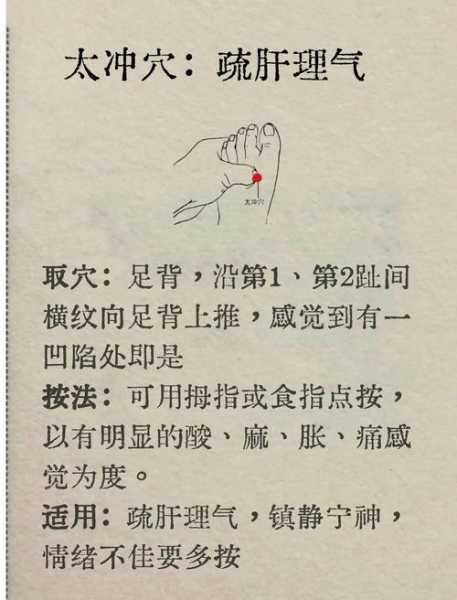 太冲穴：疏肝理气
太冲穴
取穴：足背，沿第1、第2趾间
横纹向足背上推，感觉到有一
凹陷处即是
按法：可用拇指或食指点按，
以有明显的酸、麻、胀、痛感
觉为度。
适用：疏肝理气，镇静宁神，
情绪不佳要多按